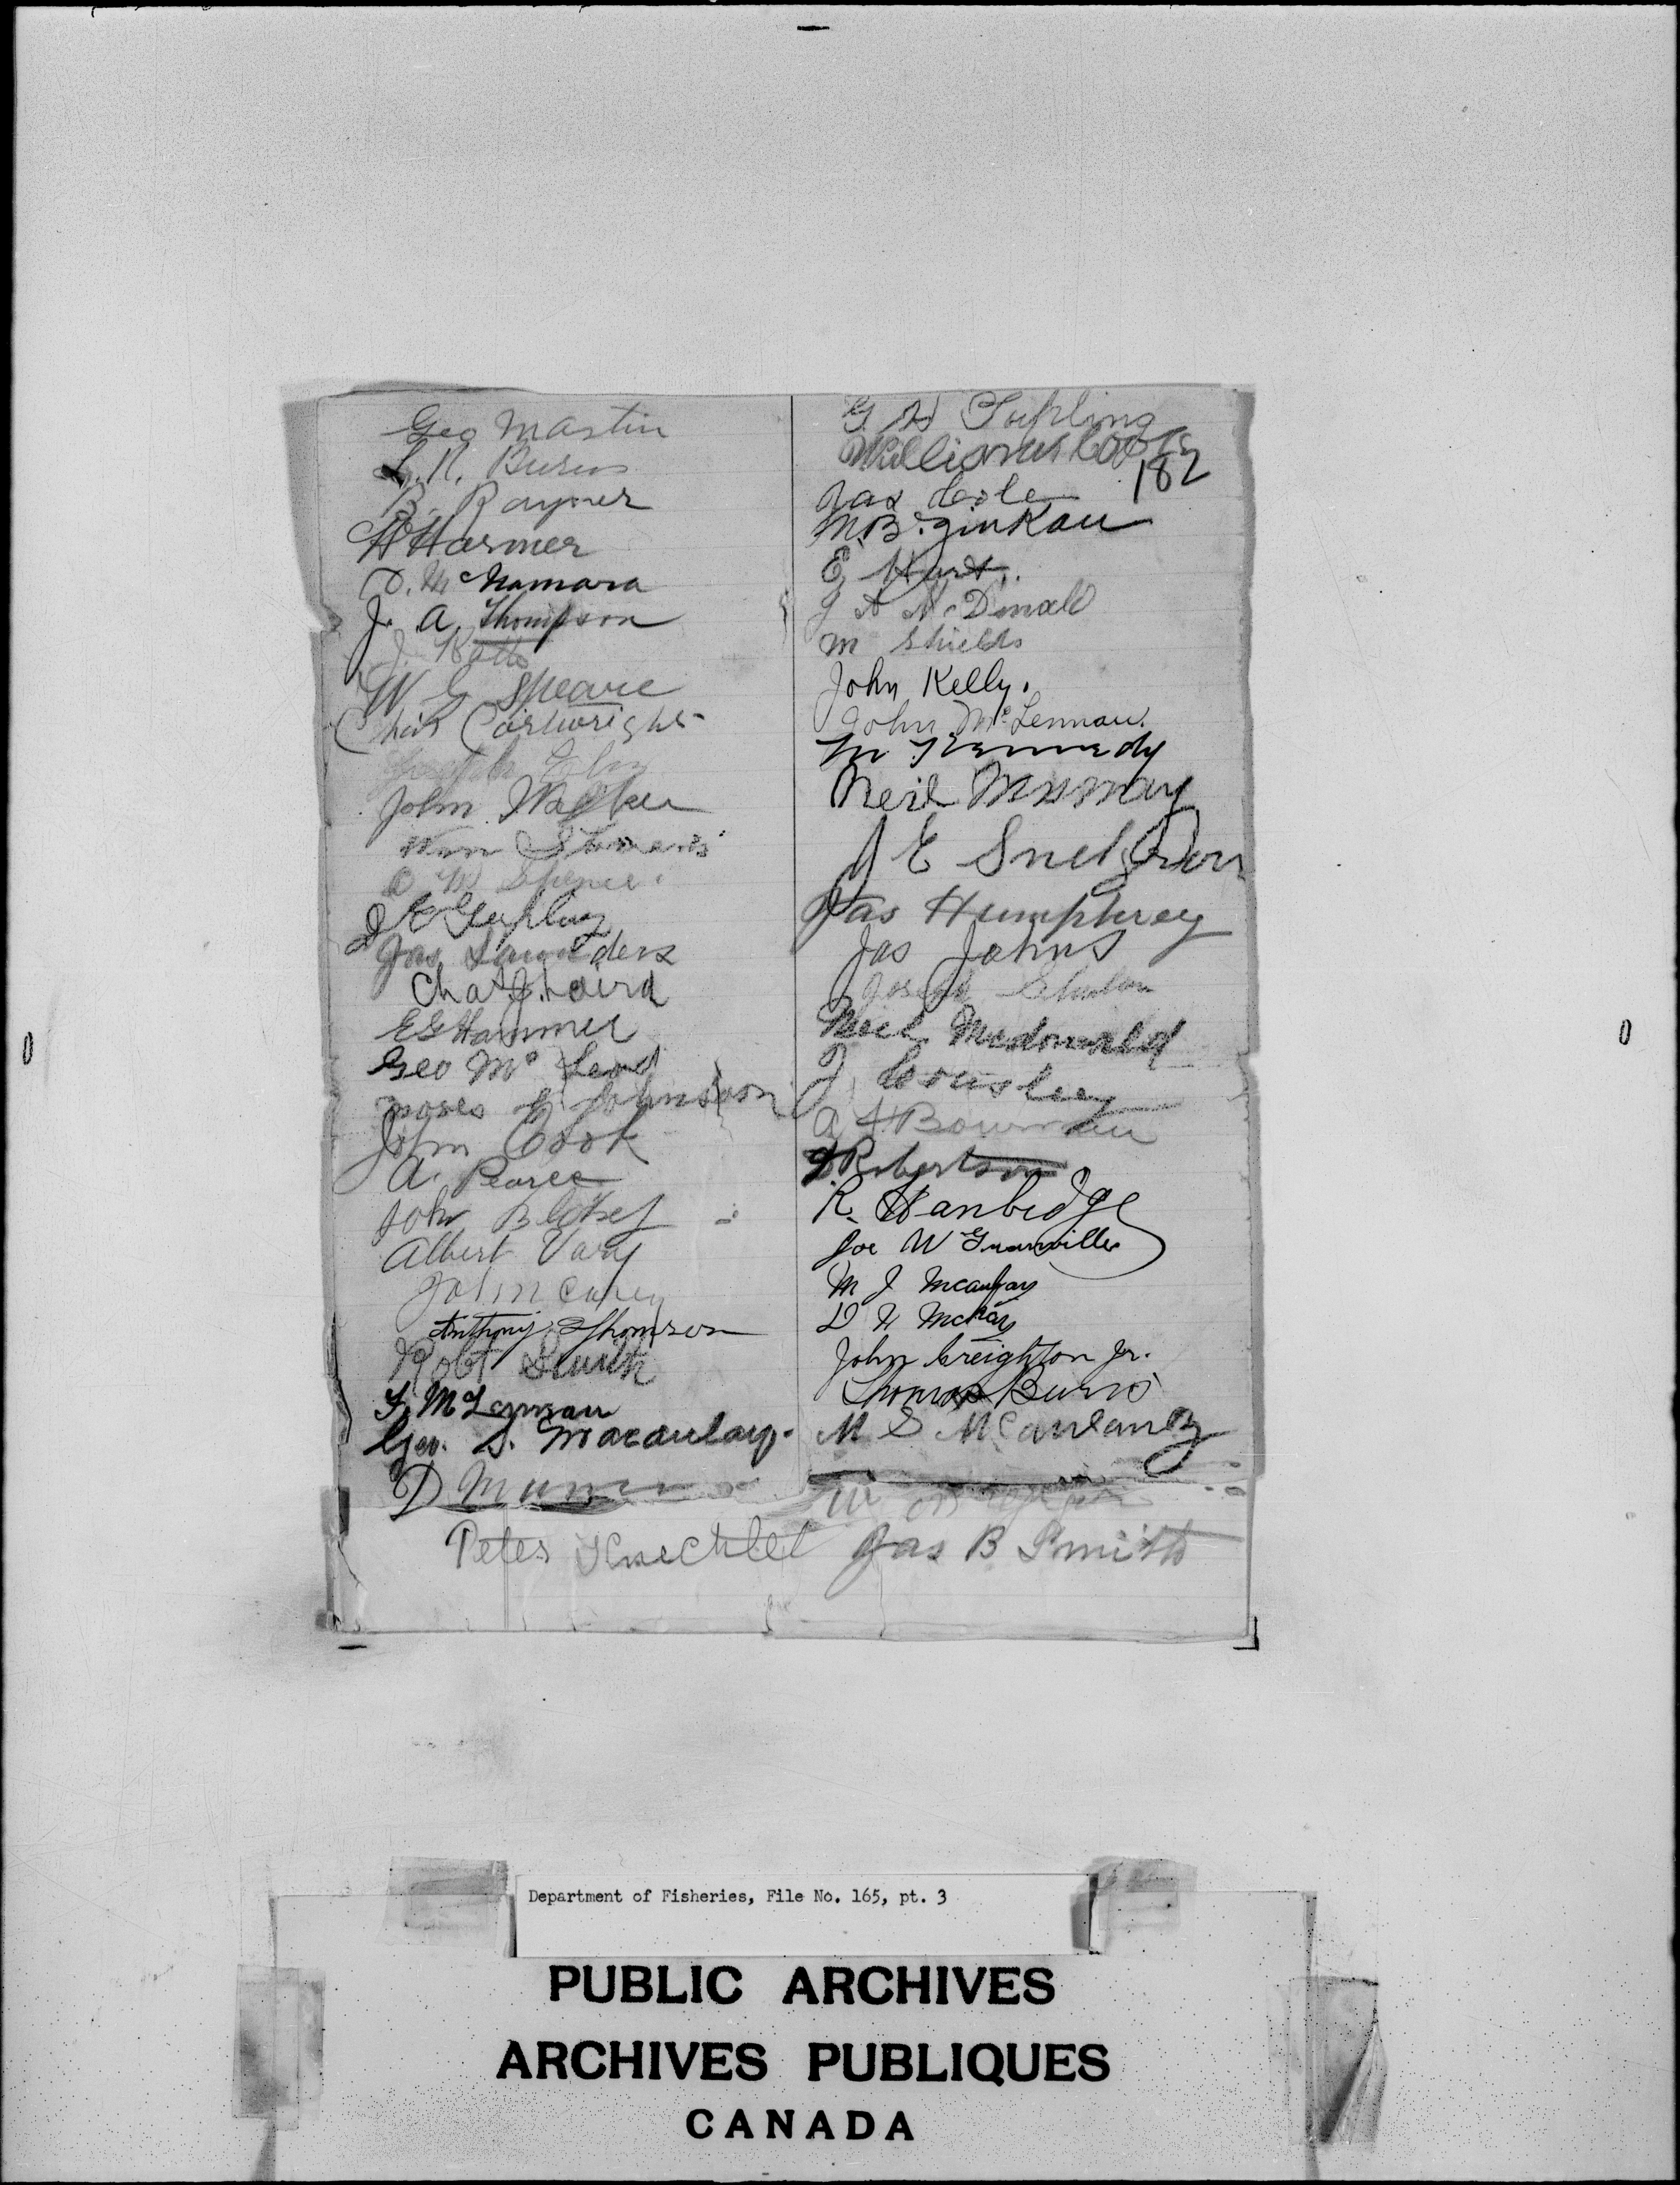 Geo Martin
L. R. Burns
B. Rayner
H Harmer
D. McNamara
J. A. Thompson
J. Watts
W G Speare
Chas Cartwright
John Walker
Wm
D W Spence.
Jas Saunders
Chas J. Laird
E G Hammer
Geo Mc Leod
Moses Johnson
John Cook
A. Pearce
John
Albert Vary
John Carey
Anthony Thomson
Robt Smith
McLennan
Geo. S. Macaulay.
D Munro
Peter Knechtel
G H Tupling
William
182
Jas Cole
M. B. Zinkan
E Hurt.
J A McDonald
M Shields
John Kelly.
John McLennan.
M Kennedy
Neil
J E Snelgrove
Jas Humphrey
Jas Johns
Joseph
Neil Mcdonald
J Cousley
A H Bowman
Robertson
R. Hanbidge
Joe W Granville
M J Mcaulay
D N McKay
John Creighton Jr.
Thomas Burns
M S McAulay
W
Jas B Smith
0
0
Department of Fisheries, File No. 165, pt. 3
PUBLIC ARCHIVES
ARCHIVES PUBLIQUES
CANADA